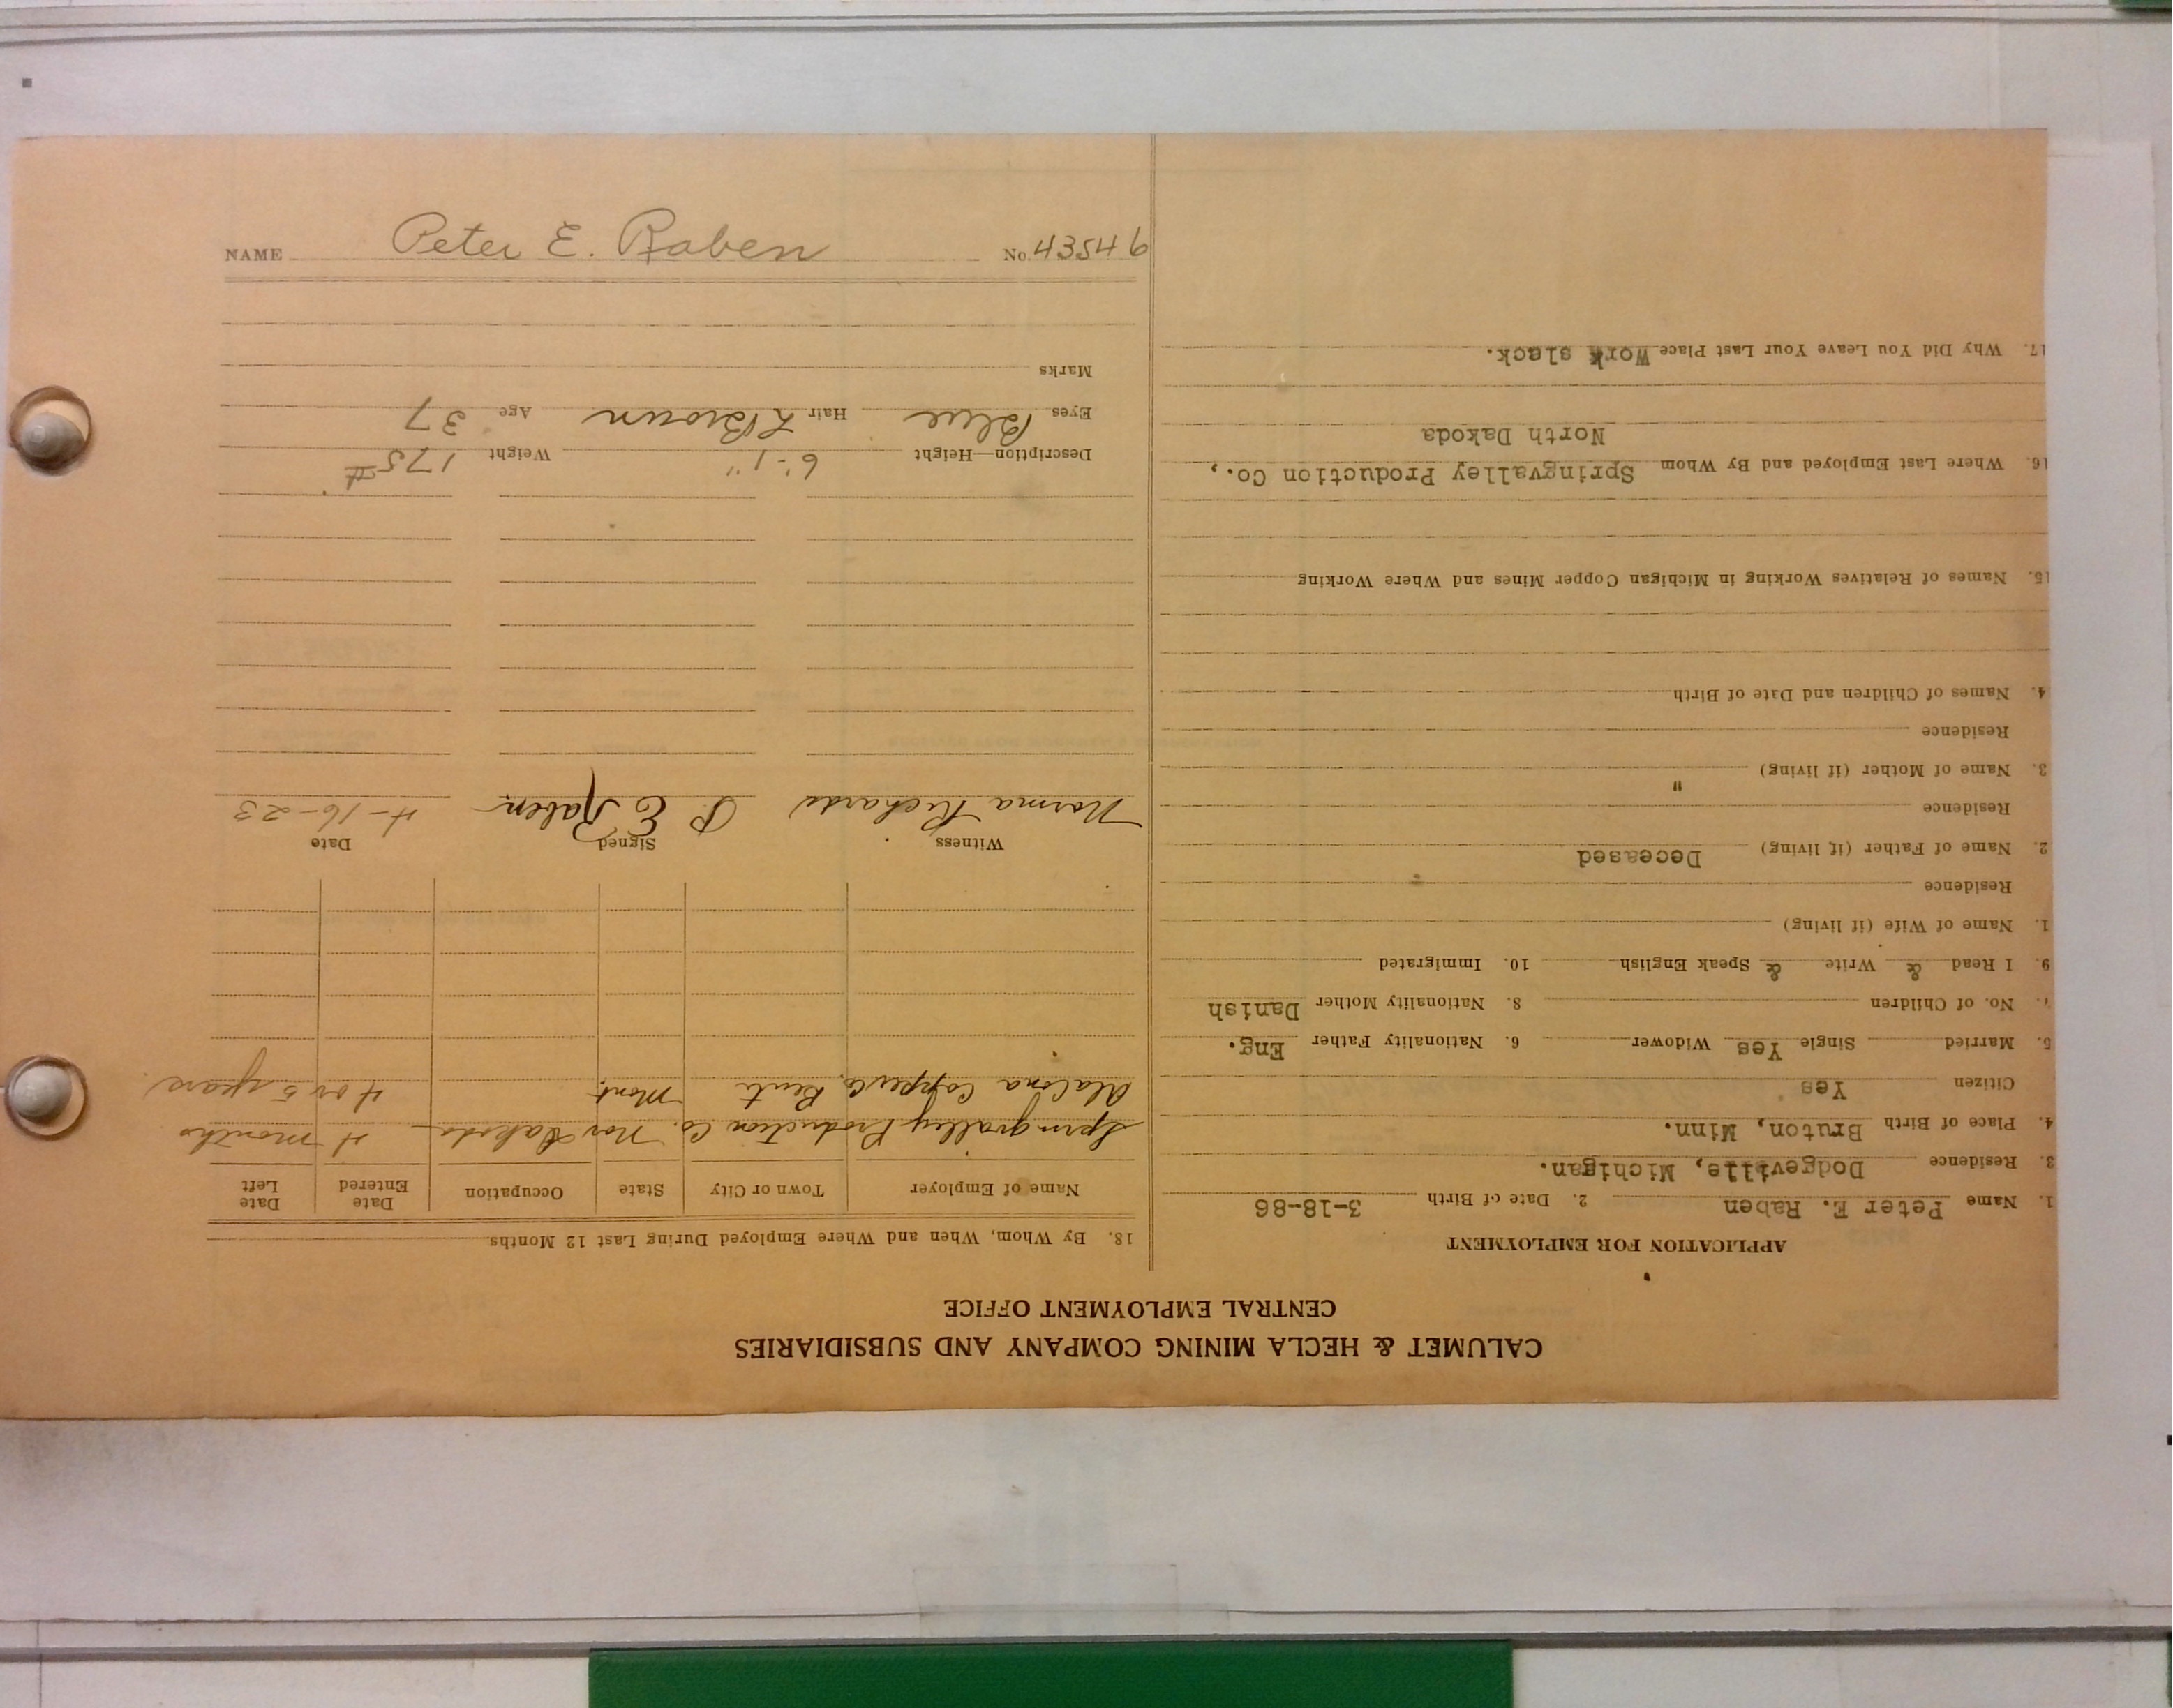 CALUMET & HECLA MINING COMPANY AND SUBSIDIARIES
CENTRAL EMPLOYMENT OFFICE
APPLICATION FOR EMPLOYMENT
1. Name Peter E. Raben 2. Date of Birth 3-18-86
3. Residence Dodgeville, Michigan.
4. Place of Birth Bruton, Minn.
Citizen Yes
5. Married Single Yes Widower 6. Nationality Father Eng.
7. No. of Children 8. Nationality Mother Danish
9. I Read & Write & Speak English 10. Immigrated
1. Name of Wife (if living)
Residence
2. Name of Father (if living) Deceased
Residence
3. Name of Mother (if living) "
Residence
4. Names of Children and Date of Birth
15. Names of Relatives Working in Michigan Copper Mines and Where Working
16. Where Last Employed and By Whom Springvalley Production Co.,
North Dakoda
17. Why Did You Leave Your Last Place Work slack.
18. By Whom, When and Where Employed During Last 12 Months
Name of Employer Town or City State Occupation Date Entered Date Left
Springvalley Production Co. Nor Dakoda 4 months
Copper Co. Mont. 4 or 5 years
Witness Signed Date
Norma Richards P. E. Raben 4-16-23
Description—Height 6'-1" Weight 175 #
Eyes Blue Hair L Brown Age 37
Marks
NAME Peter E. Raben No. 43546